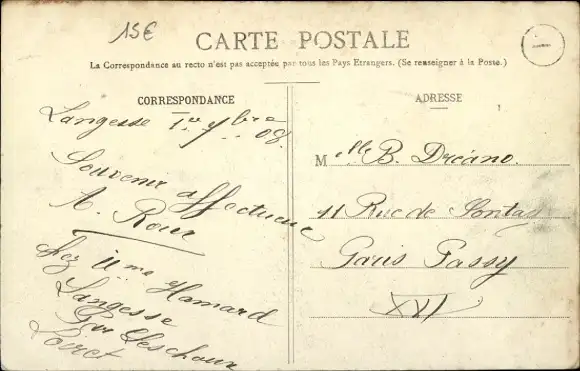 15€
CARTE POSTALE
La Correspondance au recto n'est pas acceptée par tous les Pays Etrangers. (Se renseigner à la Poste.)
CORRESPONDANCE
Langesse 1er 7bre 08.
Souvenir affectueux
A. Roux
chez Mme Hamard
Langesse
Par
Loiret
ADRESSE
Melle B. Dréano.
11 Rue de
Paris Passy
XVI